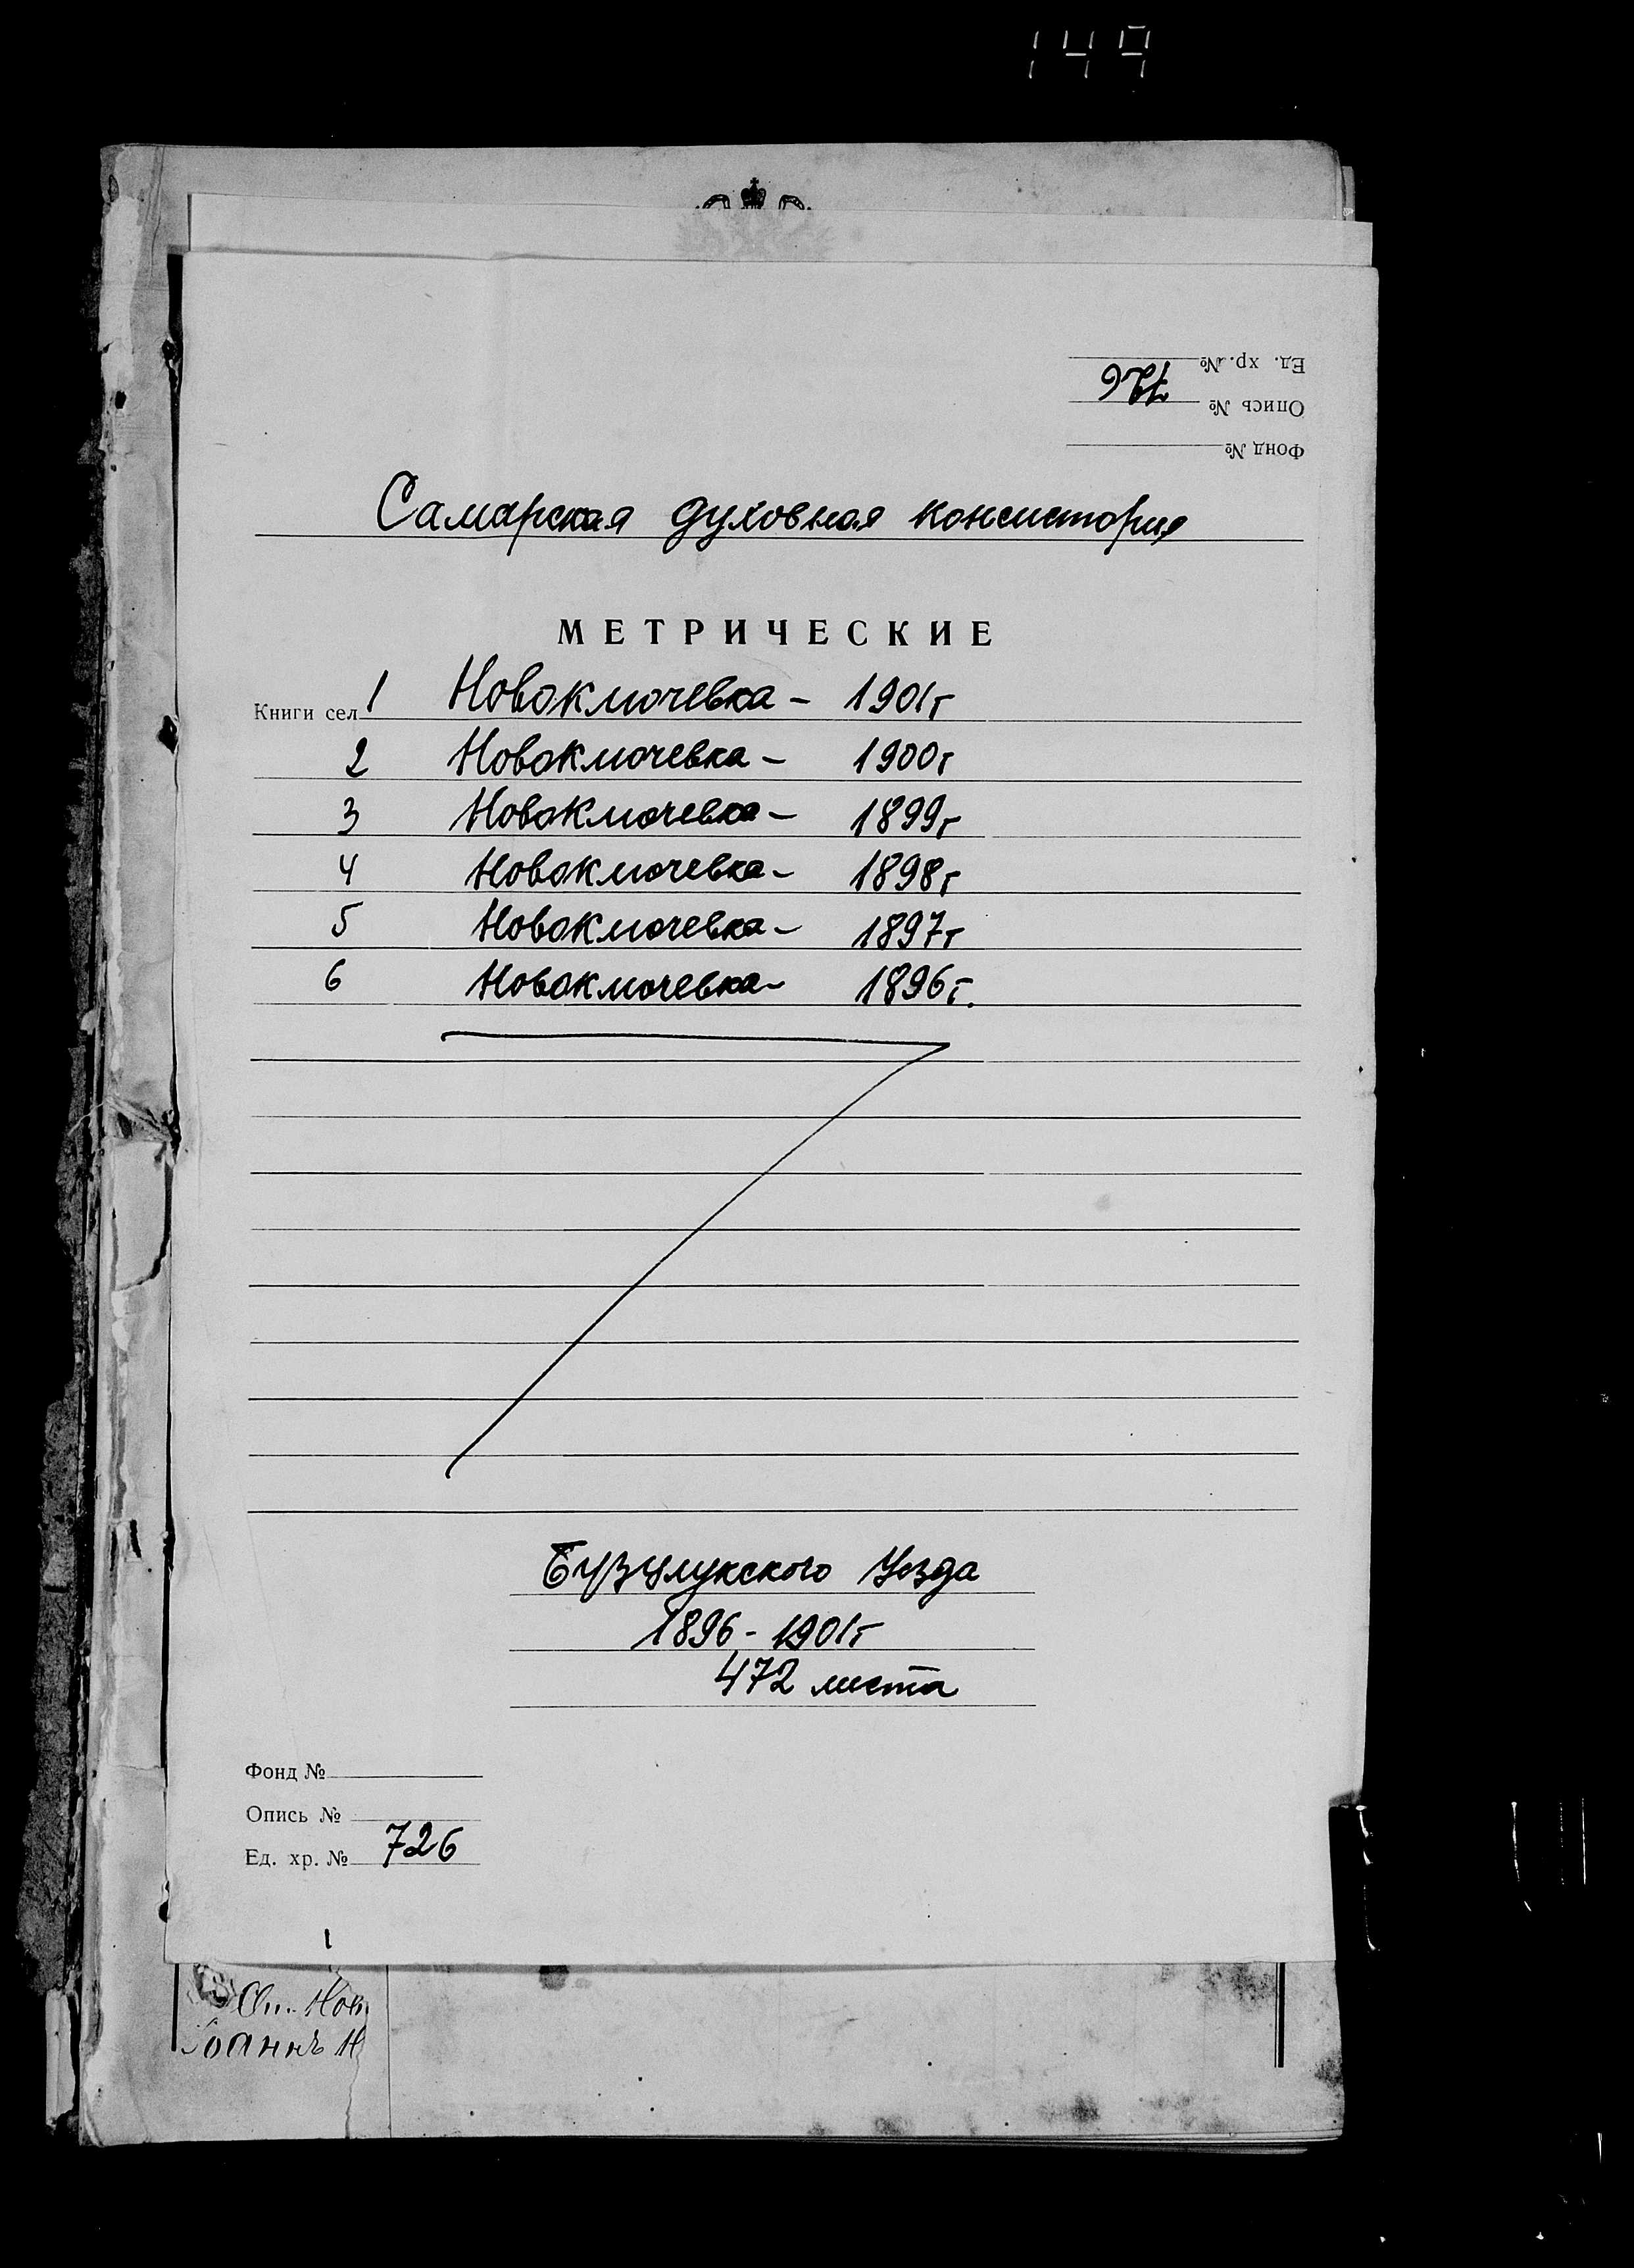 149
Ед. хр. №
Опись № 726
Фонд №
Самарская духовная консистория
МЕТРИЧЕСКИЕ
Книги сел 1 Новоключевка - 1901г
2 Новоключевка - 1900г
3 Новоключевка - 1899г
4 Новоключевка - 1898г
5 Новоключевка - 1897г
6 Новоключевка - 1896г.
Бузулукского Уезда
1896 - 1901г
472 листа
Фонд №
Опись №
Ед. хр. № 726
1